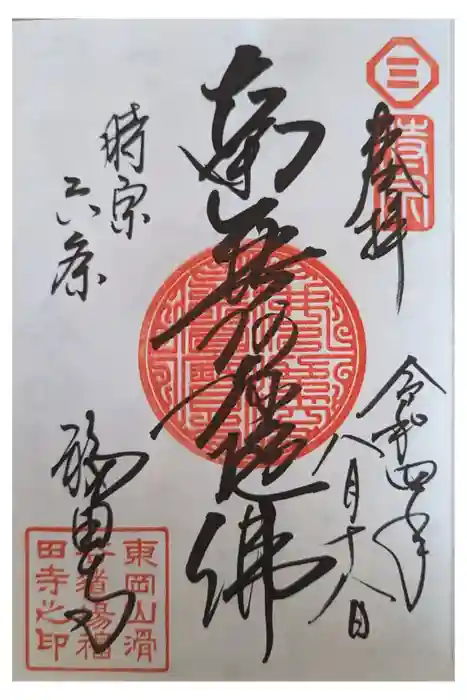 三
時宗
奉拝
令和四年
八月十八日
南無阿弥陀佛
時宗
六条
福田寺
東岡山滑
谷道場福
田寺之印